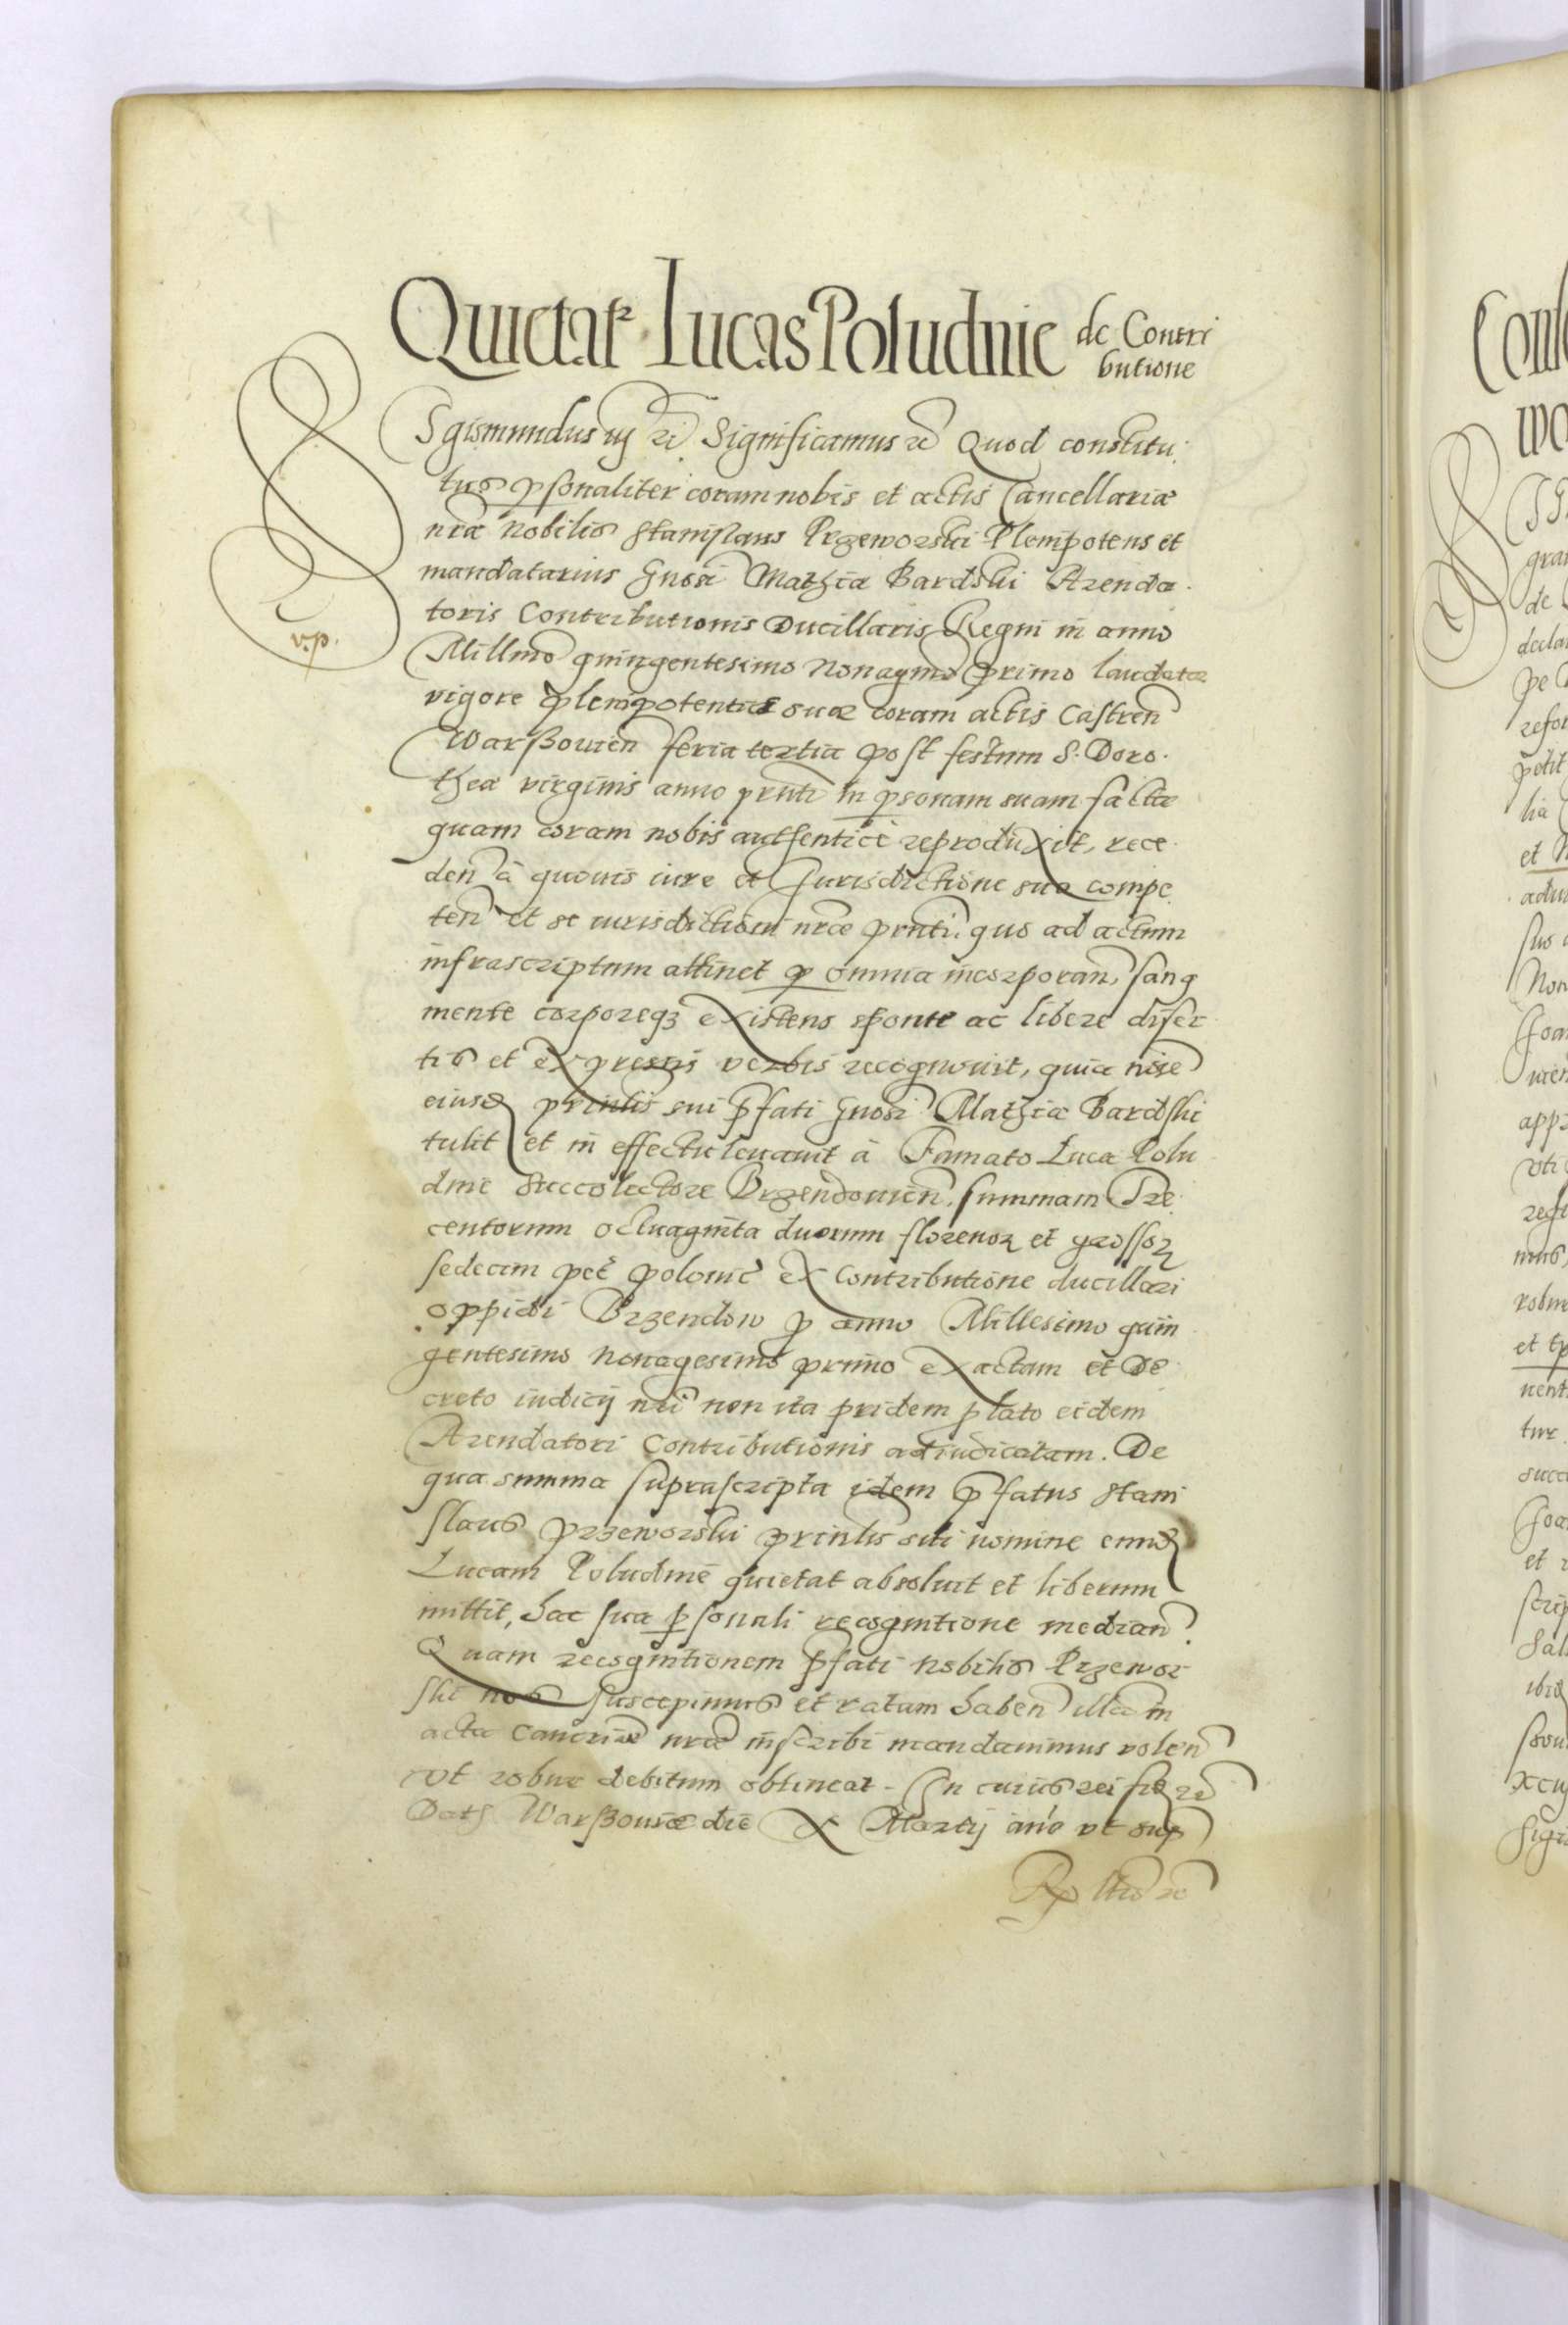 Quietat² Lucas Poludnie de Contri
butione
Sgismundus iij &c̃ Significamus &c̃ Quod constitu
tus psonaliter coram nobis et actis Cancellariæ
nr̃æ Nobilis Stanislaus Przeworski Plenipotens et
mandatarius Gnosi Mathiæ Bardski Arenda
toris Contributionis Ducillaris Regni in anno
v.p.
Millmo quingentesimo Nonagmo primo laudatæ
vigore plenipotentiæ suæ coram actis Castren̄
Warßouien̄ feria tertia post festum S. Doro
theæ virginis anno pñti in psonam suam factæ
quam coram nobis authenticè reproduxit, rece
den̄ à quouis iure et Jurisdictione sua compe
ten̄ et se iurisdictioni nr̃æ pñti. quo ad actum
infrascriptum attinet p omnia incorporan̄, sanq
mente corporeqʒ existens sponte ac libere diser
tis et expressis verbis recognouit, quia nõie
eiusd prinlis sui pfati Gnosi Mathiæ Bardski
tulit et in effectu leuauit à Famato Luca Polu
dnie Succolectore Brzendouien̄, summam Tre
centorum octuaginta duorum florenoꝝ et grossoꝝ
sedecim pec̃ polonic̃ ex Contributione ducillari
oppidi Brzendow p anno Millesimo quin
gentesimo Nonagesimo primo exactam et De
creto iudicij nr̃i non ita pridem plato eidem
Arendatori Contributionis adiudicatam. De
qua summa suprascripta idem pfatus Stani
slaus Przeworski prinlis sui nomine eund
Lucam Poludnie quietat absoluit et liberum
mittit, hac sua psonali recognitione median̄
Quam recognitionem pfati Nobilis Przewor
ski nos suscepimus et ratam haben̄ illam in
acta Cancriæ nr̃æ inscribi mandauimus volen̄
vt robur debitum obtineat. In cuius rei fid &c̃
Dats Warßouiæ die X Martij ano vt sup